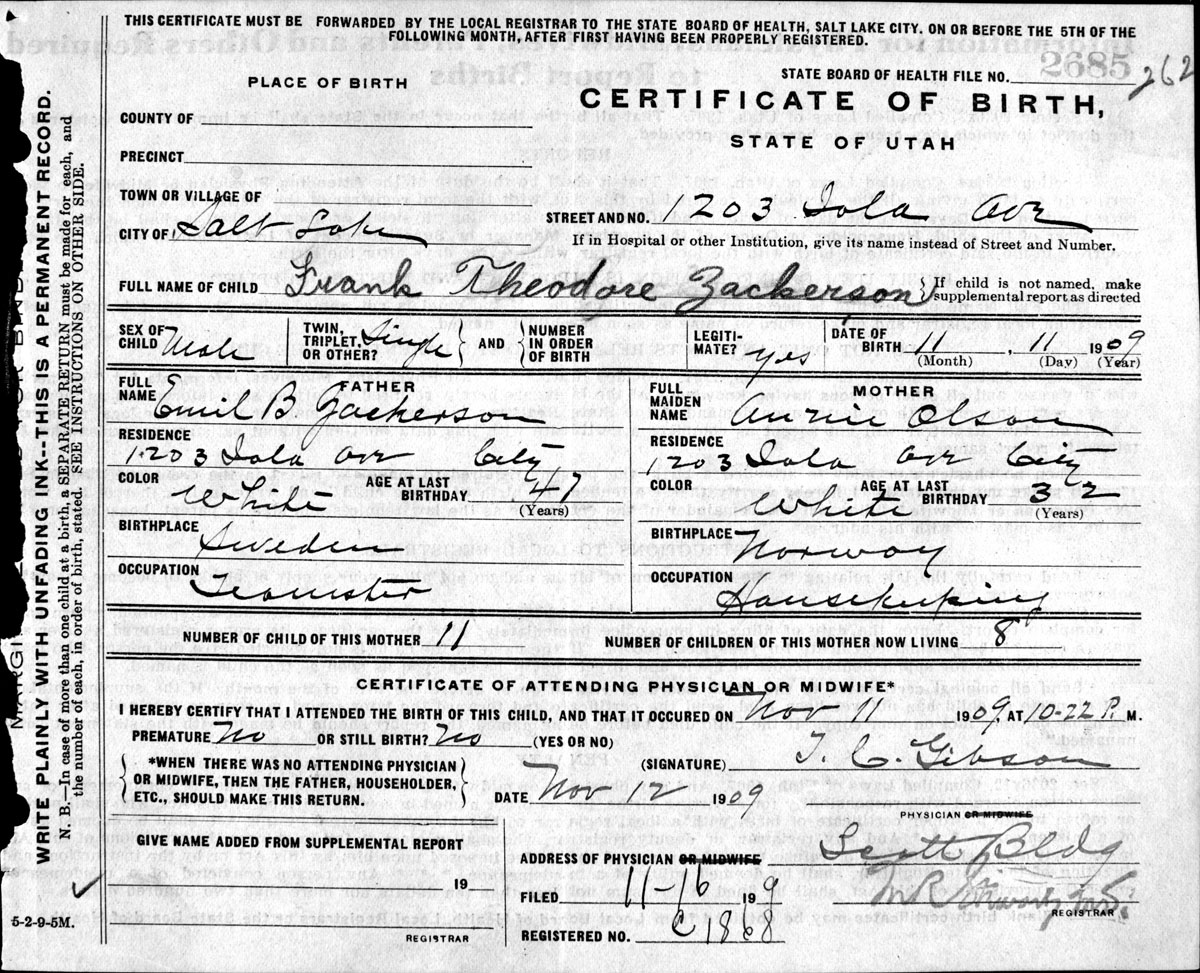 THIS CERTIFICATE MUST BE FORWARDED BY THE LOCAL REGISTRAR TO THE STATE BOARD OF HEALTH, SALT LAKE CITY. ON OR BEFORE THE 5TH OF THE
FOLLOWING MONTH, AFTER FIRST HAVING BEEN PROPERLY REGISTERED.
PLACE OF BIRTH
STATE BOARD OF HEALTH FILE NO. 262
2685
CERTIFICATE OF BIRTH,
STATE OF UTAH
COUNTY OF
PRECINCT
TOWN OR VILLAGE OF
CITY OF, Salt Lake
STREET AND NO. 1203 Iola Ave
If in Hospital or other Institution, give its name instead of Street and Number.
FULL NAME OF CHILD Frank Theodore Zackerson
If child is not named, make
supplemental report as directed
SEX OF CHILD Male
TWIN, TRIPLET, OR OTHER? Single
AND
NUMBER IN ORDER OF BIRTH
LEGITI-MATE? yes
DATE OF BIRTH 11, 11 1909
(Month) (Day) (Year)
FATHER
FULL NAME Emil B. Zackerson
RESIDENCE 1203 Iola Ave City
COLOR White AGE AT LAST BIRTHDAY 47
(Years)
BIRTHPLACE Sweden
OCCUPATION Teamster
MOTHER
FULL MAIDEN NAME Annie Olson
RESIDENCE 1203 Iola Ave City
COLOR White AGE AT LAST BIRTHDAY 32
(Years)
BIRTHPLACE Norway
OCCUPATION Housekeeping
NUMBER OF CHILD OF THIS MOTHER 11 NUMBER OF CHILDREN OF THIS MOTHER NOW LIVING 8
CERTIFICATE OF ATTENDING PHYSICIAN OR MIDWIFE*
I HEREBY CERTIFY THAT I ATTENDED THE BIRTH OF THIS CHILD, AND THAT IT OCCURED ON Nov 11 1909, AT 10-22 P. M.
PREMATURE No OR STILL BIRTH? No (YES OR NO)
*WHEN THERE WAS NO ATTENDING PHYSICIAN
OR MIDWIFE, THEN THE FATHER, HOUSEHOLDER,
ETC., SHOULD MAKE THIS RETURN.
(SIGNATURE) T. C. Gibson
DATE Nov 12 1909
PHYSICIAN OR MIDWIFE
GIVE NAME ADDED FROM SUPPLEMENTAL REPORT
19
REGISTRAR
ADDRESS OF PHYSICIAN OR MIDWIFE Scott Bldg
FILED 11-16 1909
REGISTRAR
REGISTERED NO. C 1868
5-2-9-5M.
WRITE PLAINLY WITH UNFADING INK--THIS IS A PERMANENT RECORD.
N. B.—In case of more than one child at a birth, a SEPARATE RETURN must be made for each, and
the number of each, in order of birth, stated. SEE INSTRUCTIONS ON OTHER SIDE.